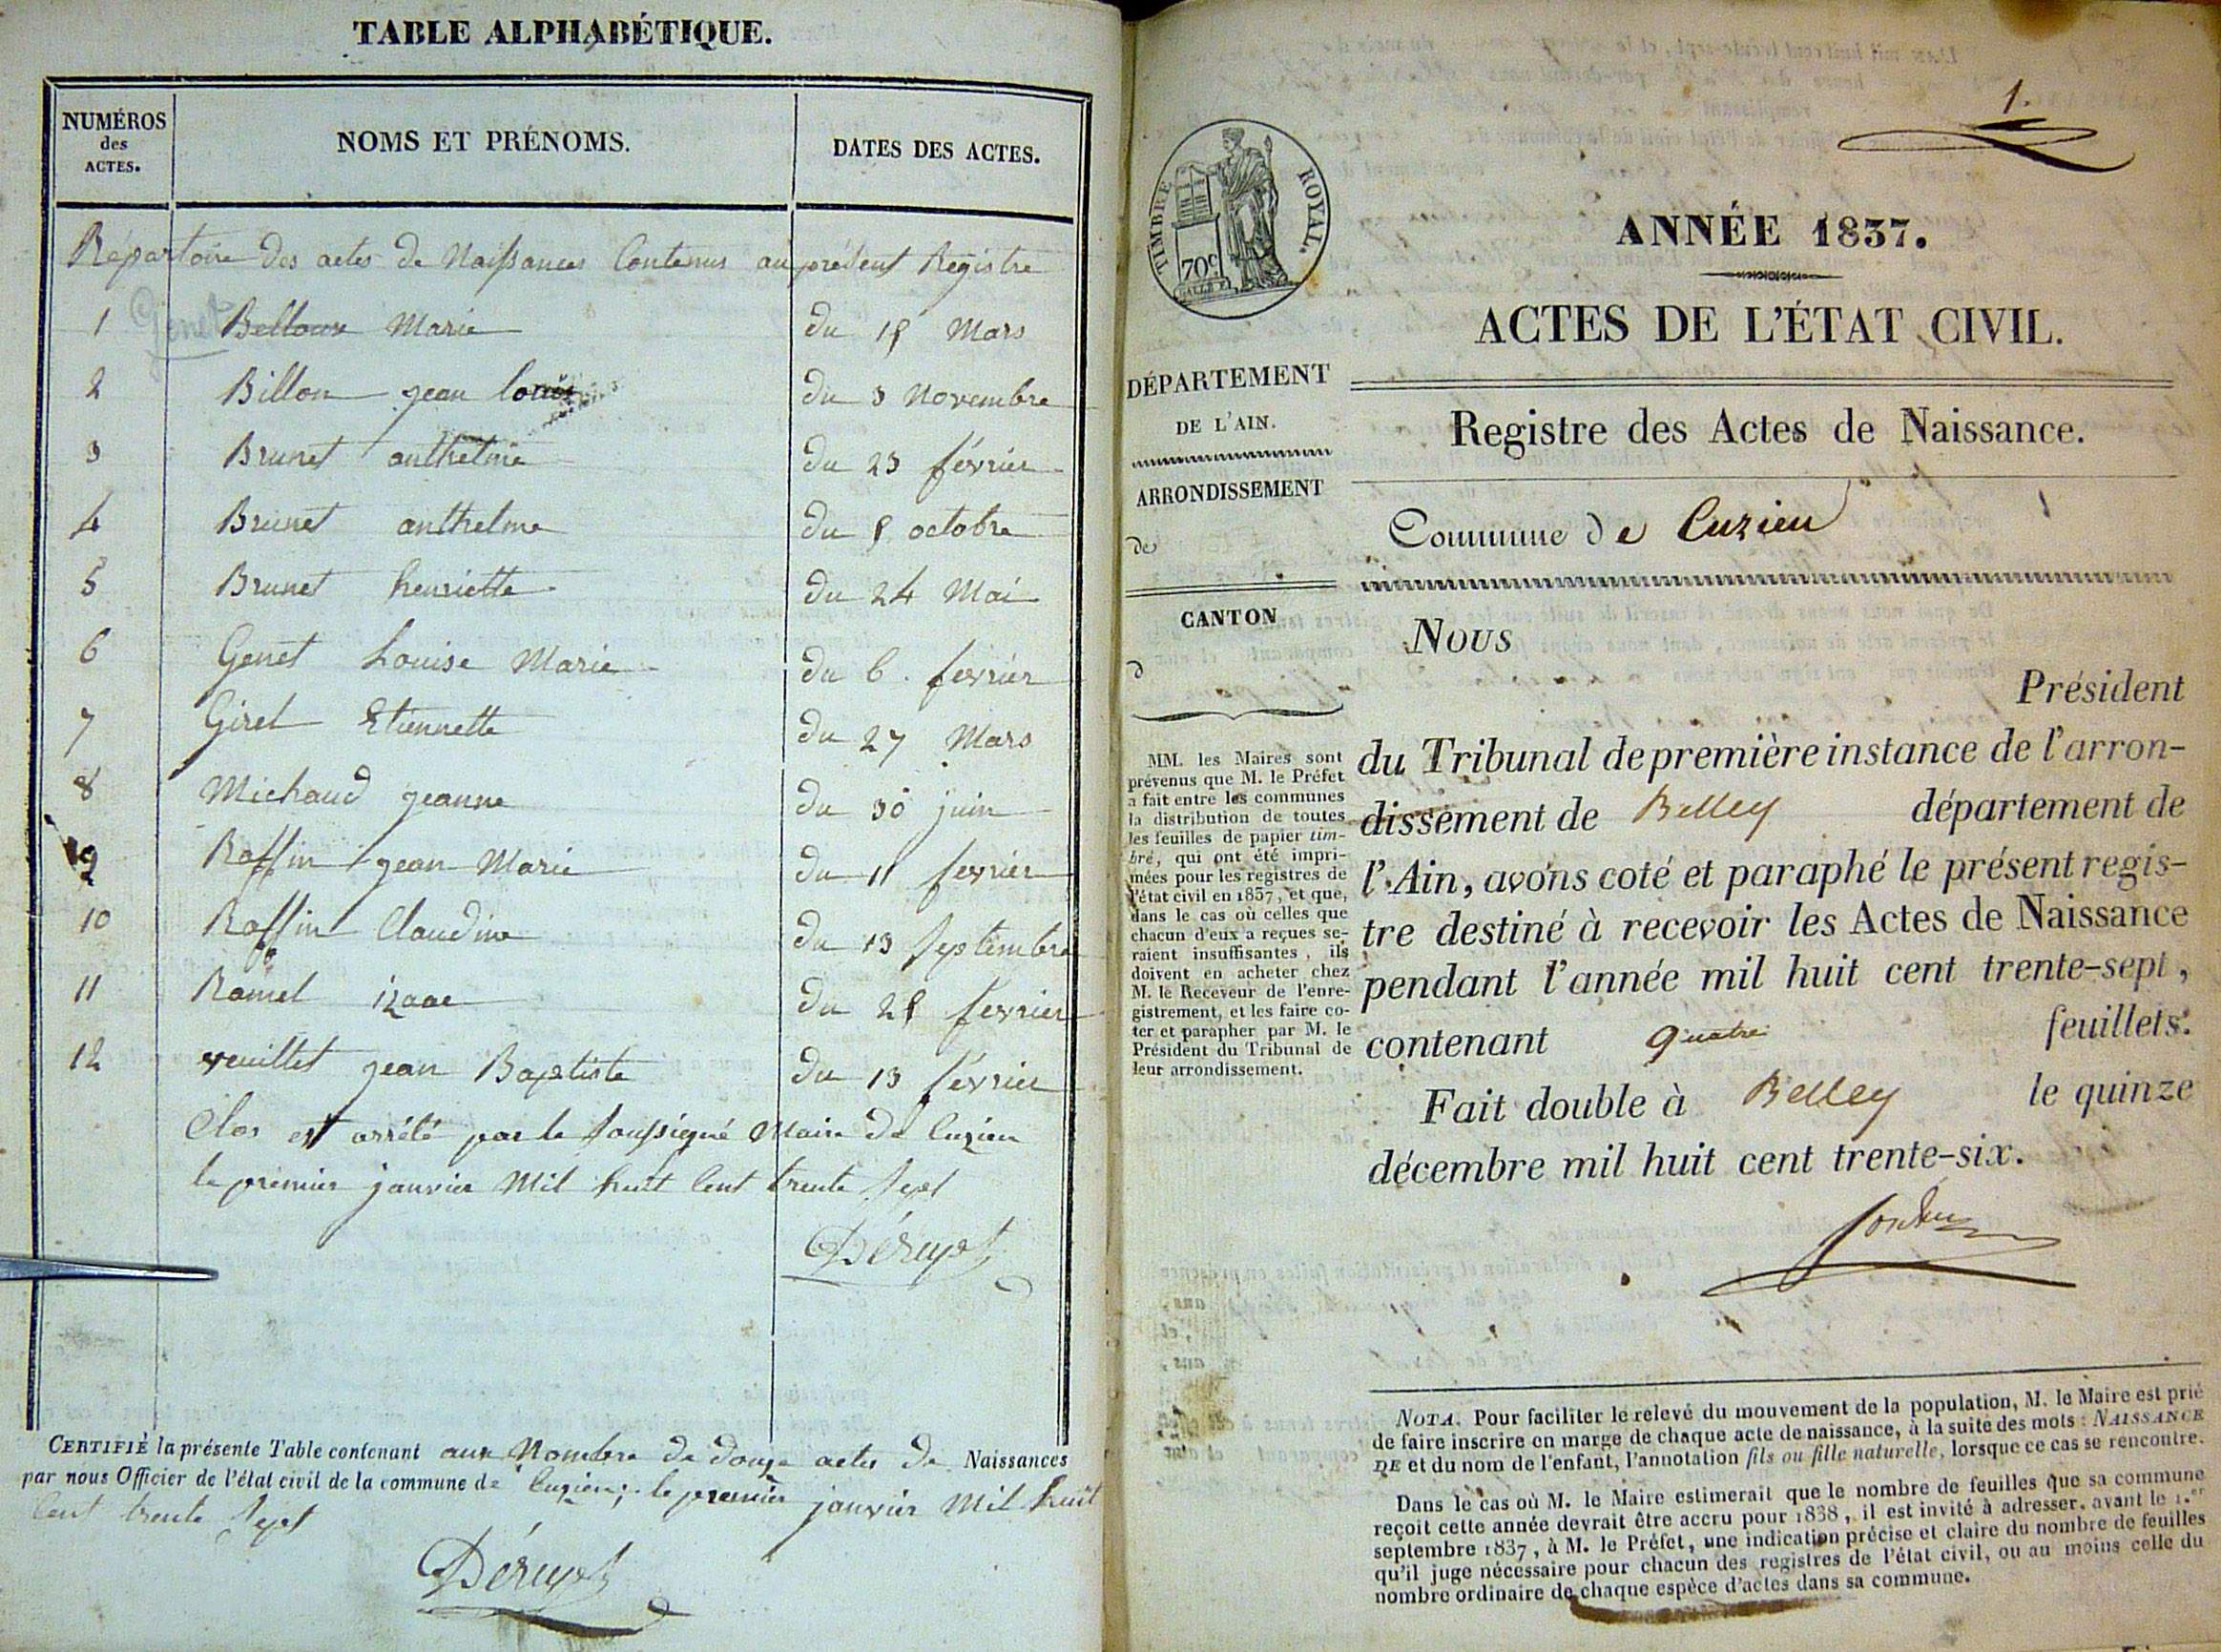 TABLE ALPHABÉTIQUE.
NUMÉROS des ACTES.
NOMS ET PRÉNOMS.
DATES DES ACTES.
Répertoire des actes de Naissances Contenus au présent Registre
1 Genet Belloux Marie du 18 Mars
2 Billon jean louis du 3 Novembre
3 Brunet anthelme du 23 février
4 Brunet anthelme du 8 octobre
5 Brunet henriette du 24 Mai
6 Genet Louise Marie du 6. fevrier
7 Girel Etiennette du 27 Mars
8 Michaud jeanne du 30 juin
9 Roffin jean Marie du 11 fevrier
10 Roffin Claudine du 13 Septembre
11 Ramel izaac du 28 fevrier
12 veuillet jean Baptiste du 13 février
Clos est arrêté par le Soussigné Maire de Cuzieu
le premier janvier Mil huit Cent trente Sept
Déruyet
CERTIFIÉ la présente Table contenant aux Nombre de douze actes de Naissances
par nous Officier de l'état civil de la commune de Cuzieu; le premier janvier Mil huit
Cent trente Sept
Déruyet
1.
TIMBRE ROYAL.
70c
ANNÉE 1837.
ACTES DE L'ÉTAT CIVIL.
DÉPARTEMENT
DE L'AIN.
Registre des Actes de Naissance.
ARRONDISSEMENT
de
Commune de Cuzieu
CANTON
d
MM. les Maires sont
prévenus que M. le Préfet
a fait entre les communes
la distribution de toutes
les feuilles de papier tim-
bré, qui ont été impri-
mées pour les registres de
l'état civil en 1837, et que,
dans le cas où celles que
chacun d'eux a reçues se-
raient insuffisantes, ils
doivent en acheter chez
M. le Receveur de l'enre-
gistrement, et les faire co-
ter et parapher par M. le
Président du Tribunal de
leur arrondissement.
Nous
Président
du Tribunal de première instance de l'arron-
dissement de Belley département de
l'Ain, avons coté et paraphé le présent regis-
tre destiné à recevoir les Actes de Naissance
pendant l'année mil huit cent trente-sept,
contenant quatre feuillets.
Fait double à Belley le quinze
décembre mil huit cent trente-six.
NOTA. Pour faciliter le relevé du mouvement de la population, M. le Maire est prié
de faire inscrire en marge de chaque acte de naissance, à la suite des mots : NAISSANCE
DE et du nom de l'enfant, l'annotation fils ou fille naturelle, lorsque ce cas se rencontre.
Dans le cas où M. le Maire estimerait que le nombre de feuilles que sa commune
reçoit cette année devrait être accru pour 1838, il est invité à adresser, avant le 1.er
septembre 1837, à M. le Préfet, une indication précise et claire du nombre de feuilles
qu'il juge nécessaire pour chacun des registres de l'état civil, ou au moins celle du
nombre ordinaire de chaque espèce d'actes dans sa commune.